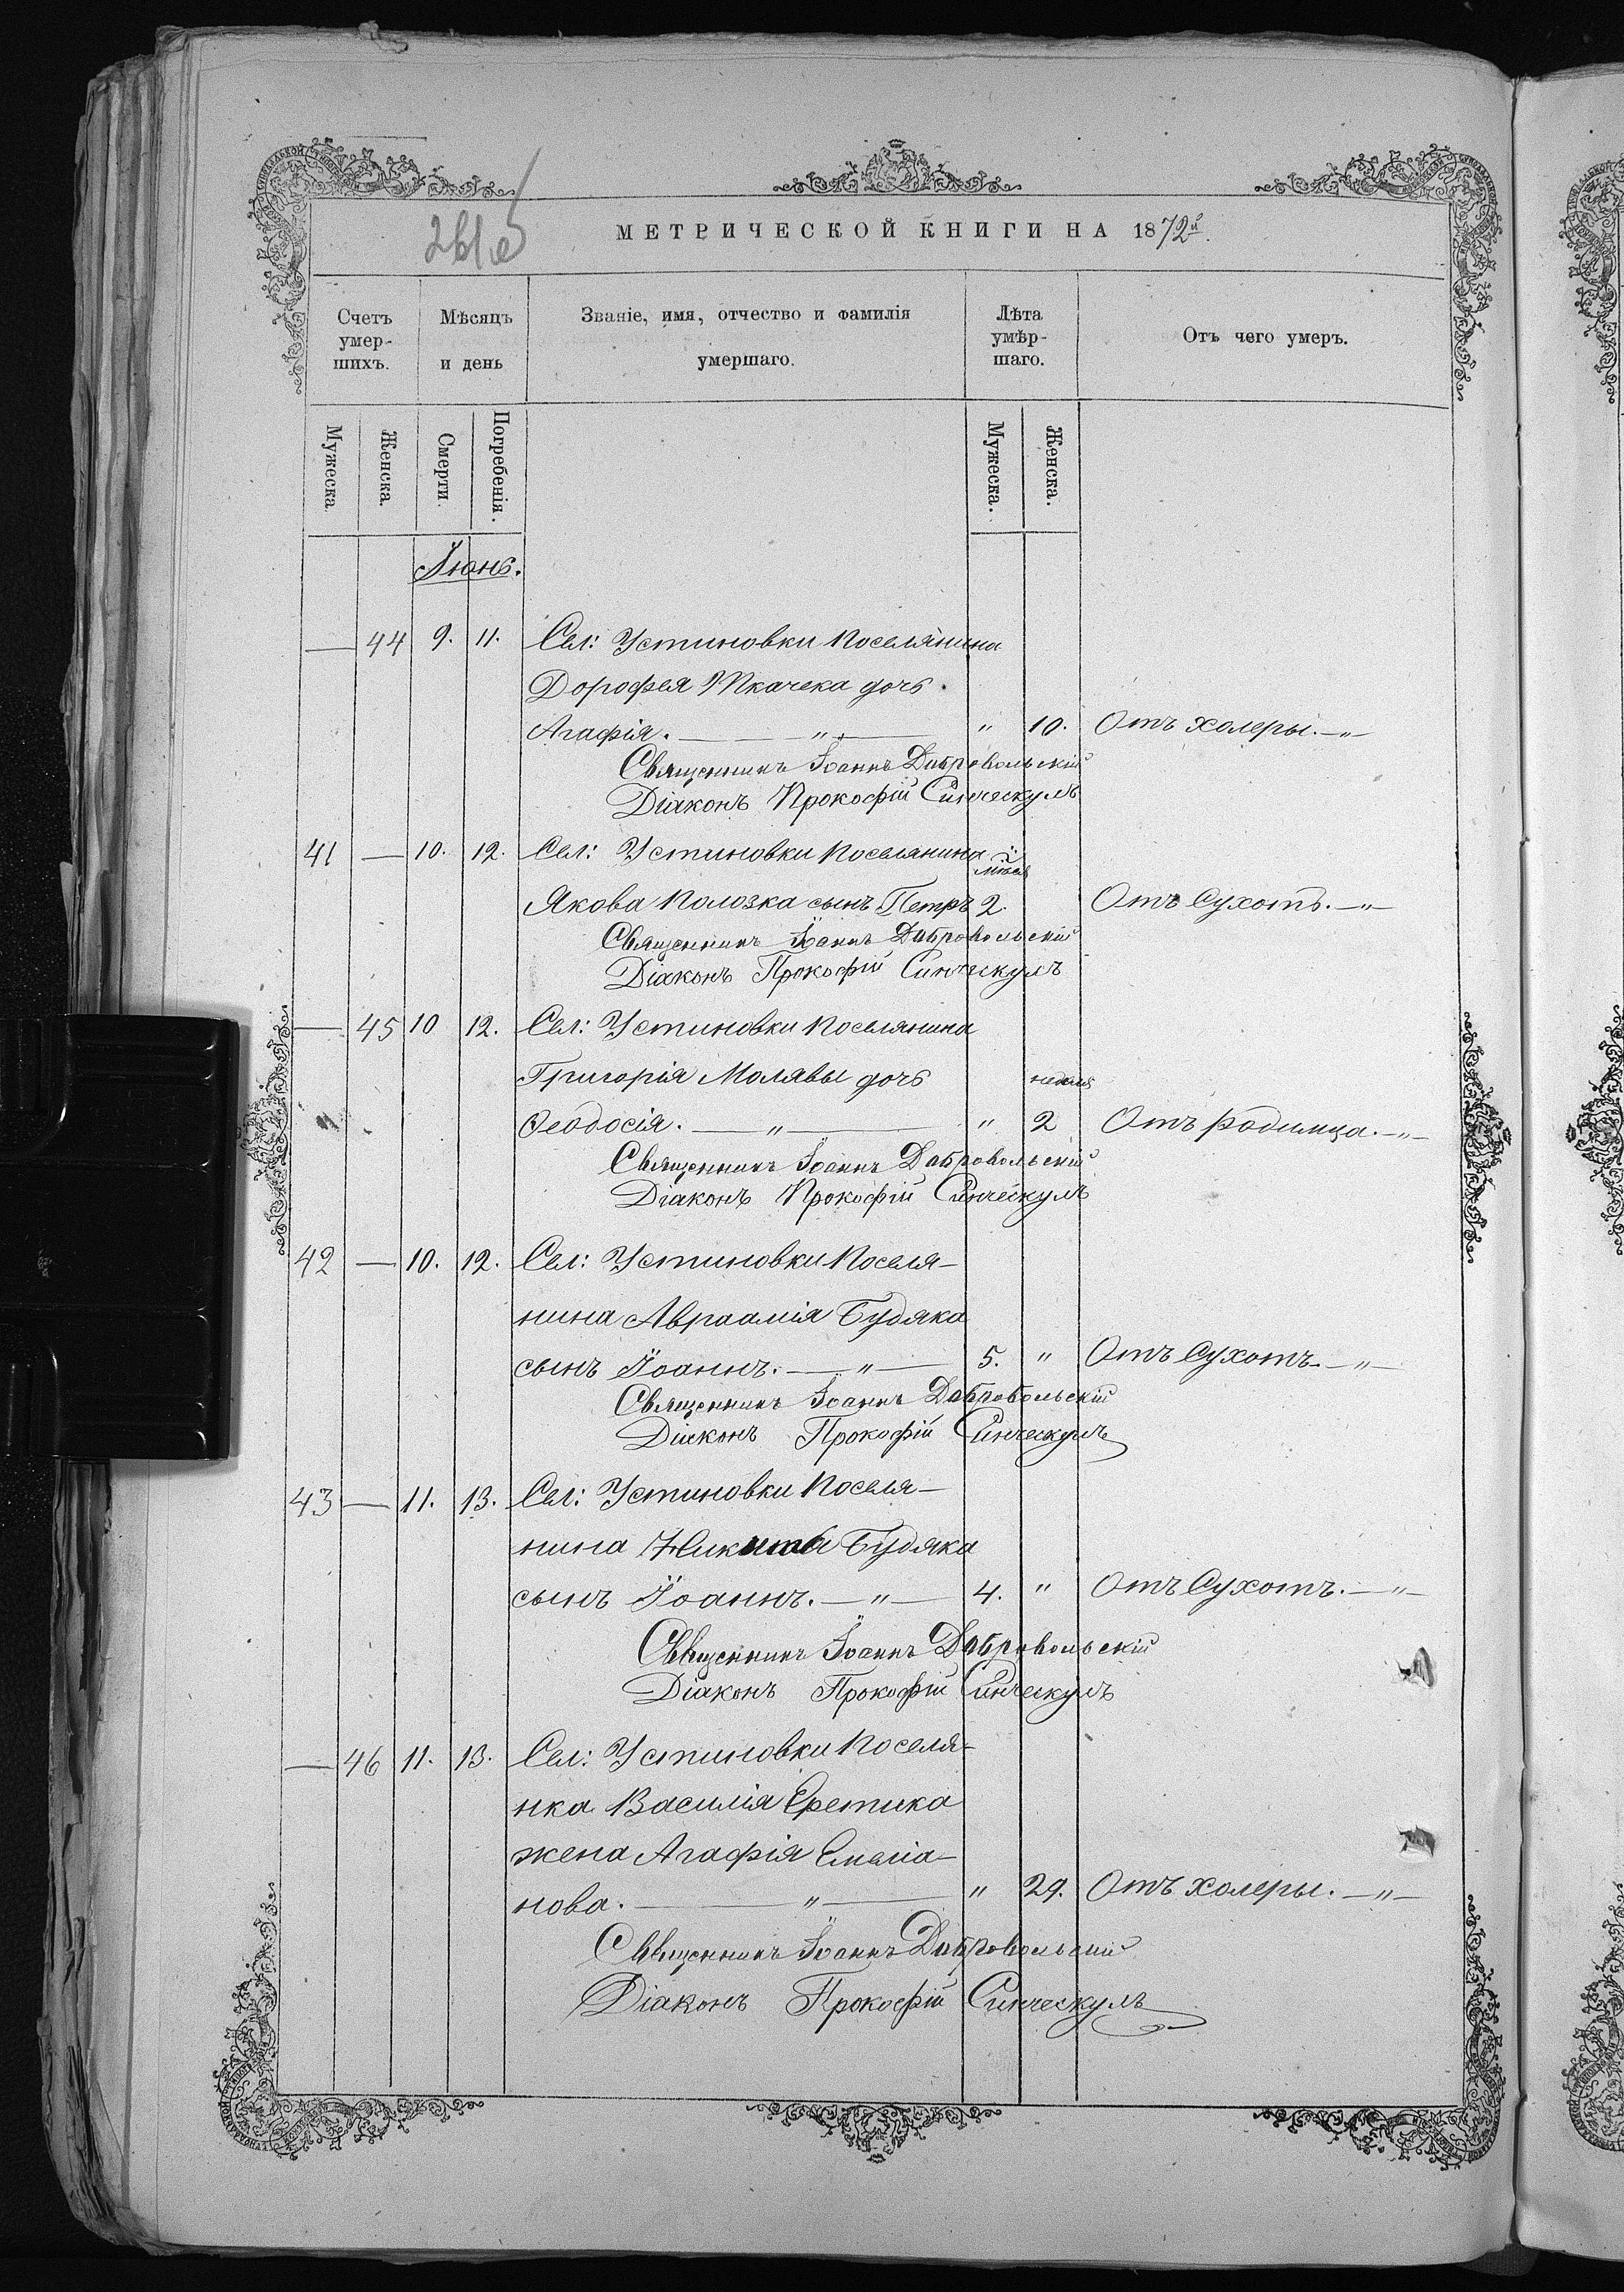 МЕТРИЧЕСКОЙ КНИГИ НА 1872й.
Счетъ умер-шихъ. Мѣсяцъ и день Званіе, имя, отчество и фамилія умершаго. Лѣта умѣр-шаго. Отъ чего умеръ.
Мужеска. Женска. Смерти. Погребенія. Мужеска. Женска.
Іюнь.
— 44 9. 11. Сел: Устиновки поселянина
Дорофея Ткачека дочь
Агафія. — " — " 10. Отъ холеры. — " —
Священникъ Іоаннъ Добровольскій
Діаконъ Прокофій
41 — 10. 12. Сел: Устиновки поселянина "
мѣсяц
Якова Полозка сынъ Петръ 2. Отъ Сухотъ. — " —
Священникъ Іоаннъ Добровольскій
Діаконъ Прокофій
— 45 10 12. Сел: Устиновки поселянина
Григорія Молявы дочь недѣля
Ѳеодосія. — " — " 2 Отъ родимца. — " —
Священникъ Іоаннъ Добровольскій
Діаконъ Прокофій
42 — 10. 12. Сел: Устиновки Поселя-
нина Авраамія Будяка
сынъ Іоаннъ. — " — 5. " Отъ Сухотъ. — " —
Священникъ Іоаннъ Добровольскій
Діаконъ Прокофій
43 — 11. 13. Сел: Устиновки Поселя-
нина Никиты Будяка
сынъ Іоаннъ. — " — 4. " Отъ Сухотъ. — " —
Священникъ Іоаннъ Добровольскій
Діаконъ Прокофій
— 46 11. 13. Сел: Устиновки поселя-
нка Василія Еретика
жена Агафія Емелія-
нова. — " — " 29. Отъ холеры. — " —
Священникъ Іоаннъ Добровольскій
Діаконъ Прокофій